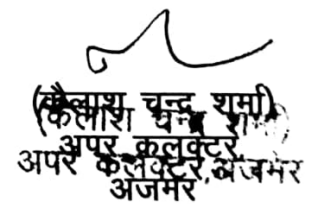 (कैलाश चन्द्र शर्मा)
(कैलाश चन्द्र शर्मा)
अपर कलक्टर
अपर कलक्टर, अजमेर
अजमेर